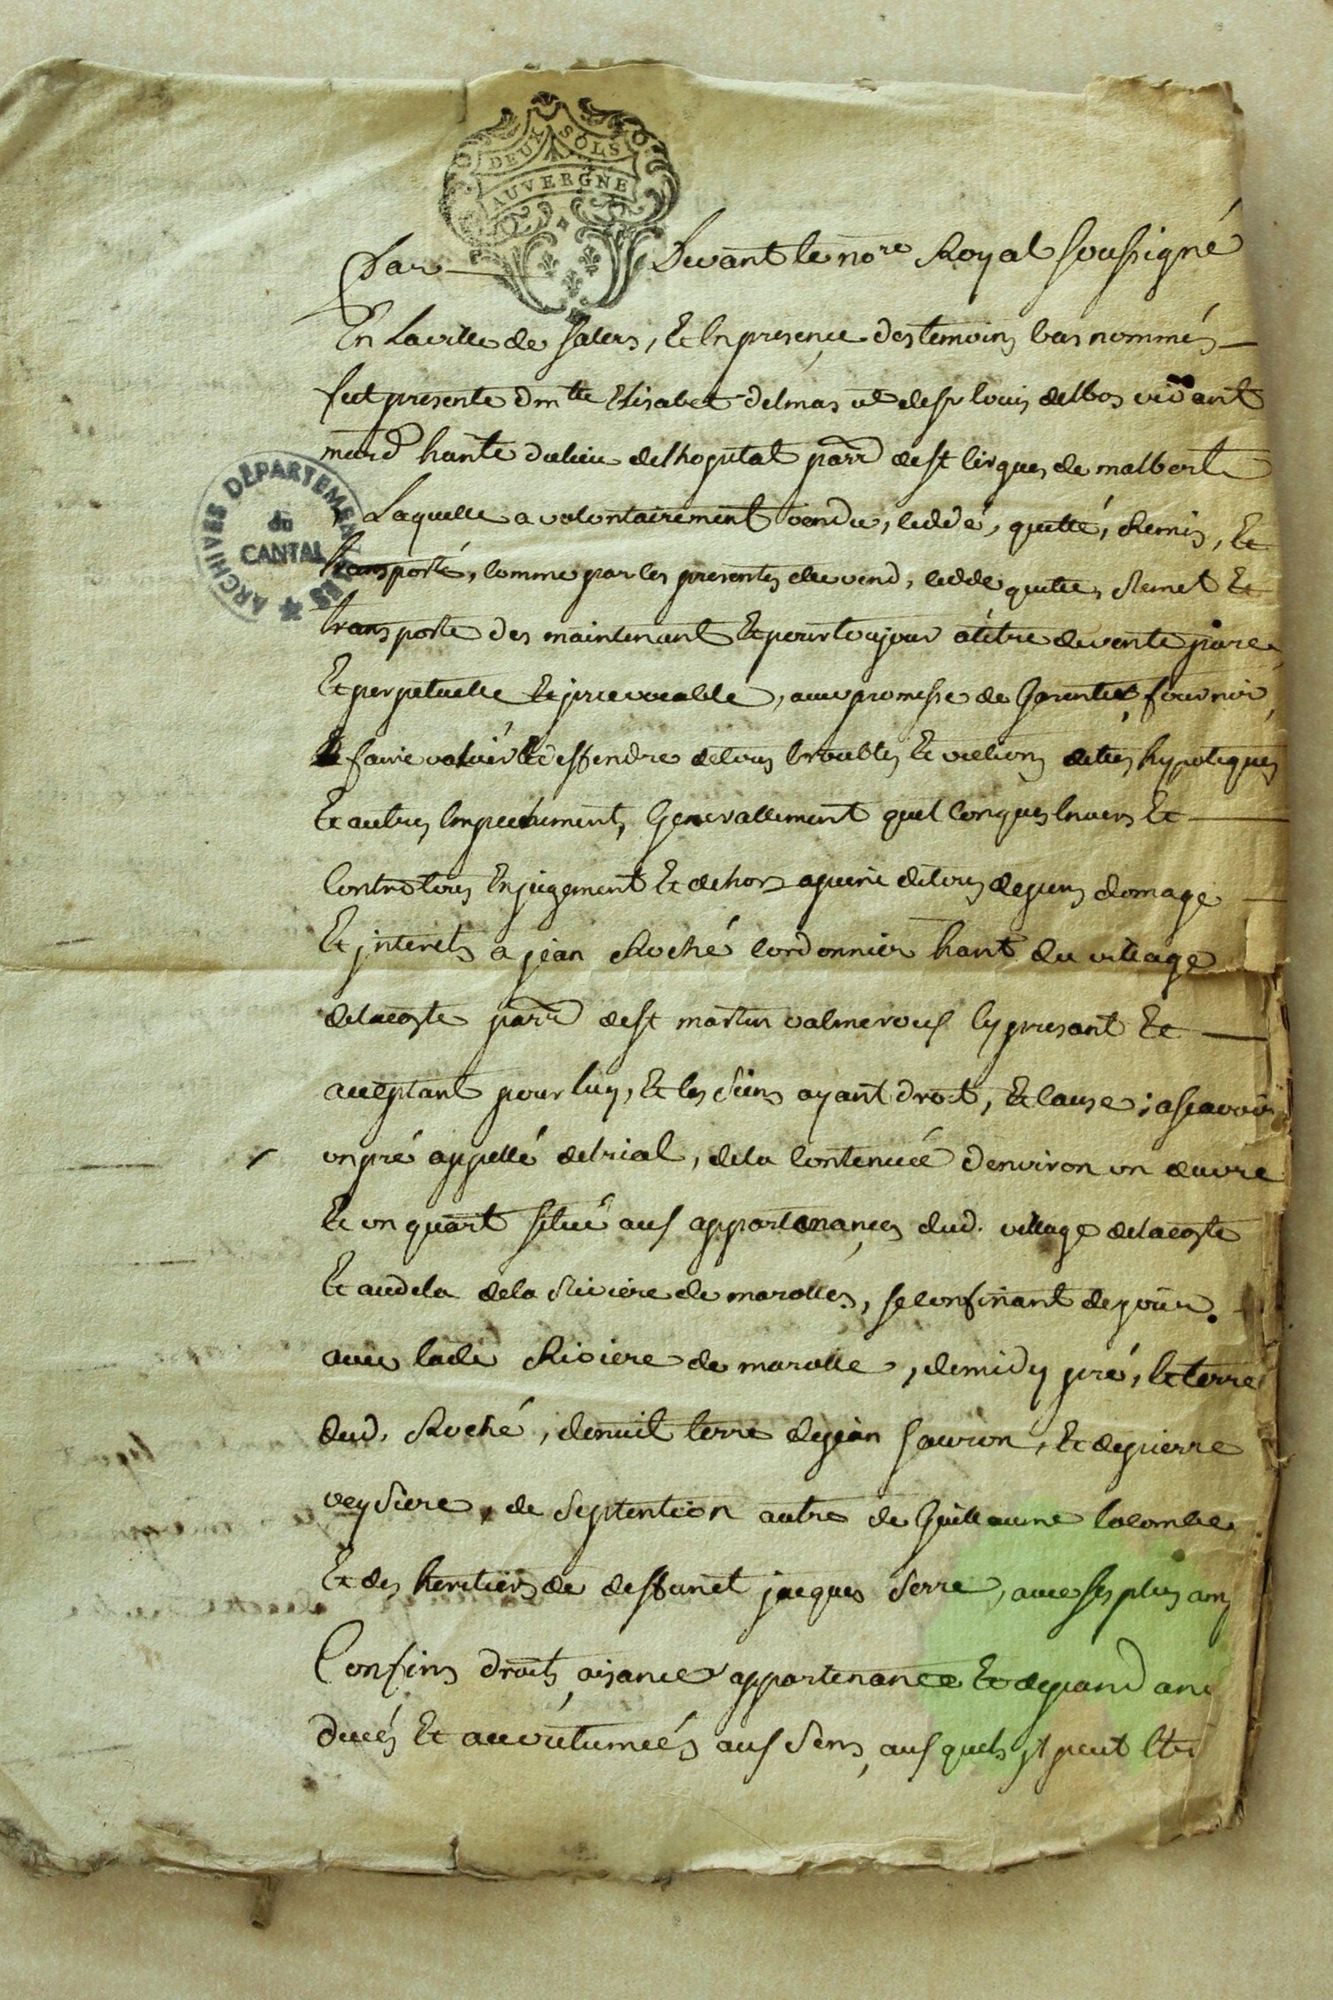 DEUX SOLS
AUVERGNE
Par Devant le no.re Royal soussigné
En la ville de salers, Et En presence des temoins bas nommés
fut presente dm.lle Elisabet delmas v.e de s.r louis delbos vivant
march hante du lieu de lhopital parr. de st cirques de malbert
ARCHIVES DÉPARTEMENTALES
du
CANTAL
Laquelle a volontairement vendu, ceddé, quitté, Remis, Et
transporté, comme par les presentes elle vend, cedde quitte, Remet Et
transporte des maintenant Et pour toujour a titre de vente pure
Et perpetuelle Et jrrevocable, avec promesse de Garentir, fournir,
faire valoir Et deffendre de tous troubles Evictions dettes hypoteques
Et autres Empechement, Generallement quelconques Envers Et
Contre tous En jugement Et dehors a peine de tous depens domage
Et jnterets a jean Roché cordonnier hant du village
de lacoste parr. de st martin valmeroux Cy presant Et
acceptant pour luy, Et les Siens ayant droit, Et cause; ascavoir
un pré appellé del rial, de la contenuée d'environ un œuvre
Et un quart situé aux appartenances dud. village de lacoste
Et audela de la Riviere de marolles, se confinant de jour.
avec lade Riviere de marolle, de midy pré, Et terre
dud. Roché, de nuit terre de jean sauron, Et de pierre
veysiere, de Septention autre de Guillaume lacombe
Et des heretiers de deffunct jacques Serre, avec ses plus am
Confins droits, aisance appartenance Et depandanc
ducés Et accoutumées aux Sens, aux quels jl peut Etr